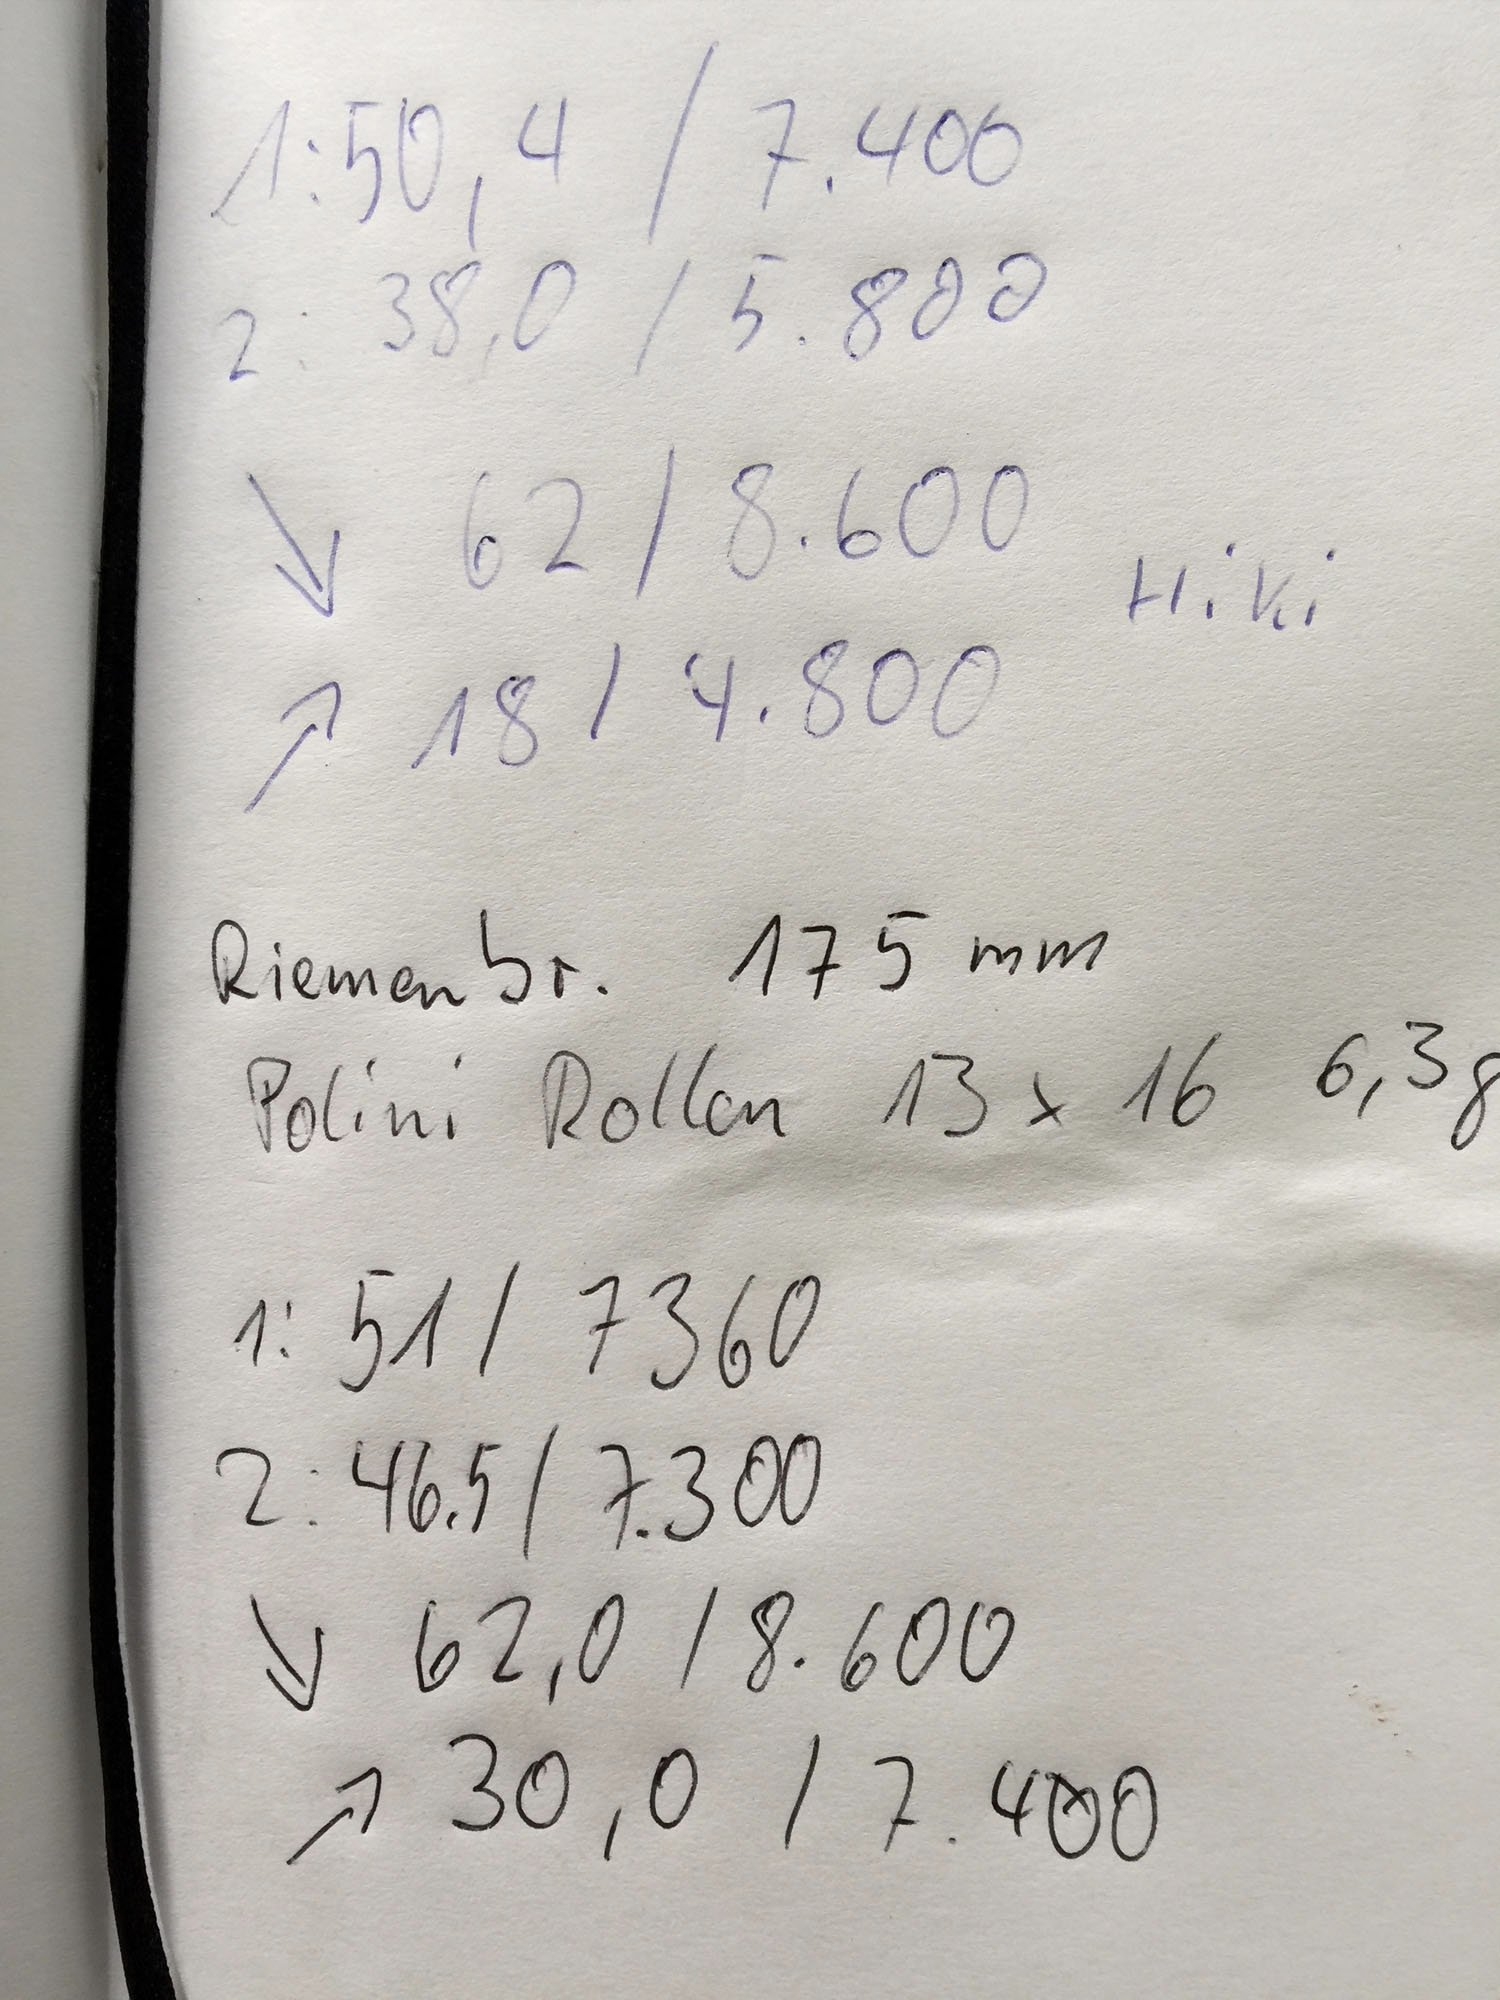 1: 50,4 / 7.400
2: 38,0 / 5.800
↘ 62 / 8.600
Hiki
↗ 18 / 4.800
Riemenbr. 175 mm
Polini Rollen 13 x 16 6,3g
1: 51 / 7360
2: 46.5 / 7.300
↘ 62,0 / 8.600
↗ 30,0 / 7.400